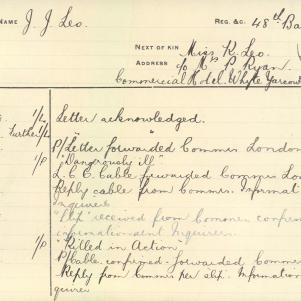 NAME J. J. Leo. REG. &C. 48th Ba
NEXT OF KIN Miss K. Leo.
ADDRESS c/o Mrs P. Ryan.
Commercial Hotel. Whyte Yarcow
Letter acknowledged.
Furthe
P/Letter forwarded Commr. London
"Dangerously ill"
L.C.O. Cable forwarded Commr. Lon
Reply cable from Commr. Informat
inquirers
"Slip" received from Commr. confirm
information sent Inquirers.
1/P "Killed in Action"
P/Cable. confirmed. forwarded Comm
Reply from Commr per slip. Information
quirer